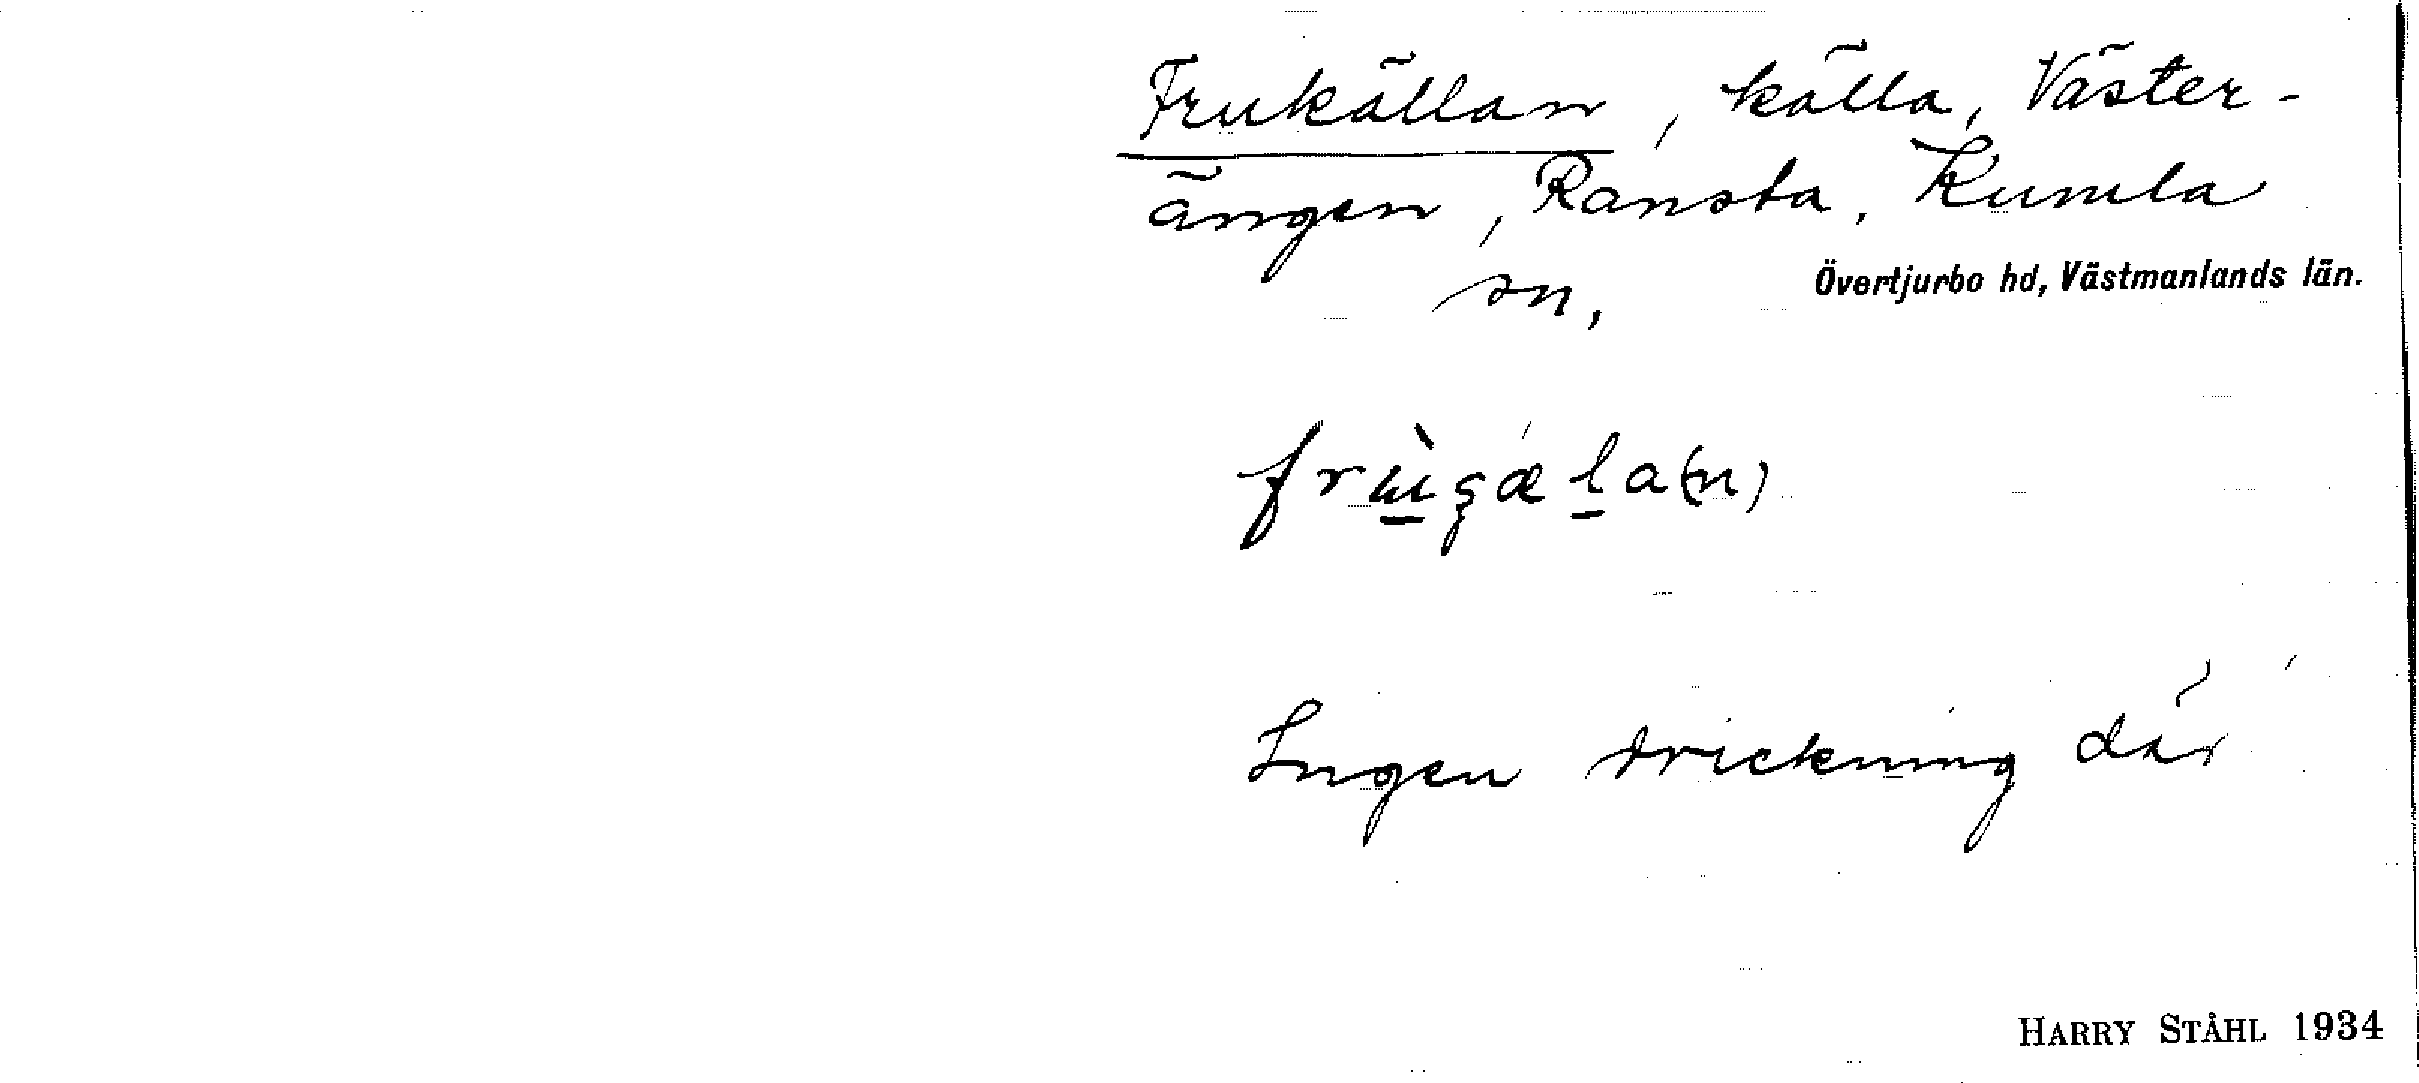 Frukällan, källa, Väster-
ängen, Ransta, Kumla
sn, Övertjurbo hd, Västmanlands län.
frùçæla(n)
Ingen drickning där
HARRY STÅHL 1934